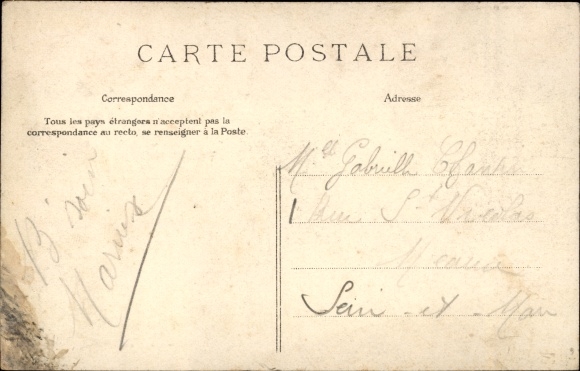 CARTE POSTALE
Correspondance
Tous les pays étrangers n'acceptent pas la
correspondance au recto, se renseigner à la Poste.
Adresse
Mlle Gabrielle
1 Rue St Nicolas
Meaux
Sein - et - Mar